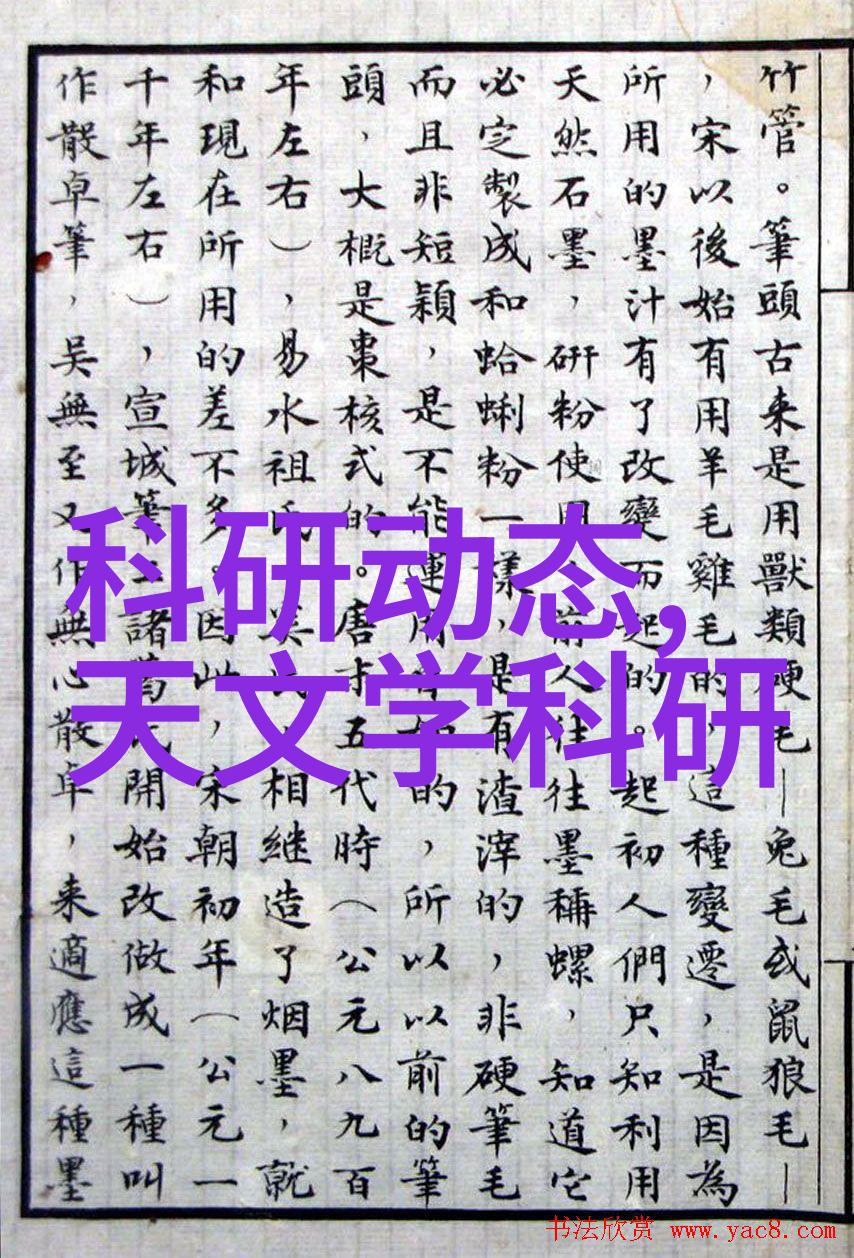 竹管。筆頭古来是用獸類硬毛—兔毛或鼠狼毛—
，宋以後始有用羊毛雞毛的，這種變遷，是因為
所用的墨汁有了改變而起的。起初人們只知利用
天然石墨，研粉使用，前人往往墨稱螺，知道它
必定製成和蛤蜊粉一樣，是有渣滓的，非硬筆毛
而且非短穎，是不能運用自如的，所以以前的筆
頭，大概是棗核式的。唐末五代時（公元八九百
年左右），易水祖氏、吴氏，相继造了烟墨，就
和現在所用的差不多。因此，宋朝初年（公元一
千年左右），宣城筆工諸葛氏開始改做成一種叫
作散卓筆，吴無至又作無心散卓，来適應這種墨
科研动态,
天文学科研
书法欣赏 www.yac8.com